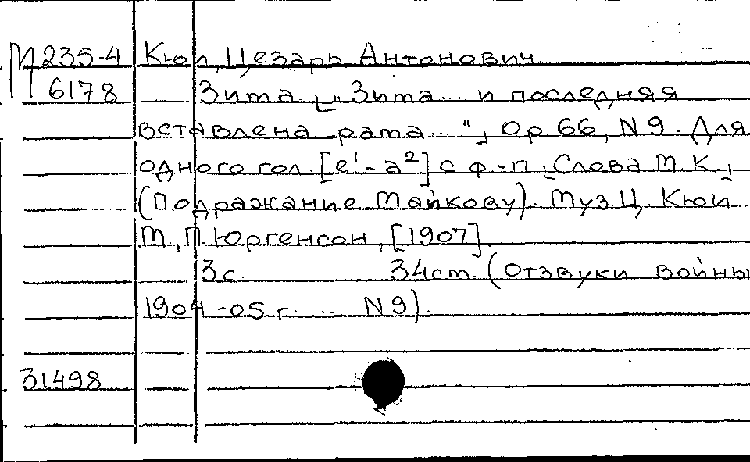 М 235-4 Кюи, Цезарь Антонович
П 6178 Зима „Зима и последняя
вставлена рама...", Op 66, N 9. Для
одного гол. [e¹-a²] с ф.-п. Слова М. К.,
(Подражание Майкову). Муз Ц. Кюи
М., П. Юргенсон, [1907].
3с. 34cm. (Отзвуки войны
1904-05 г. ... N 9).
31498